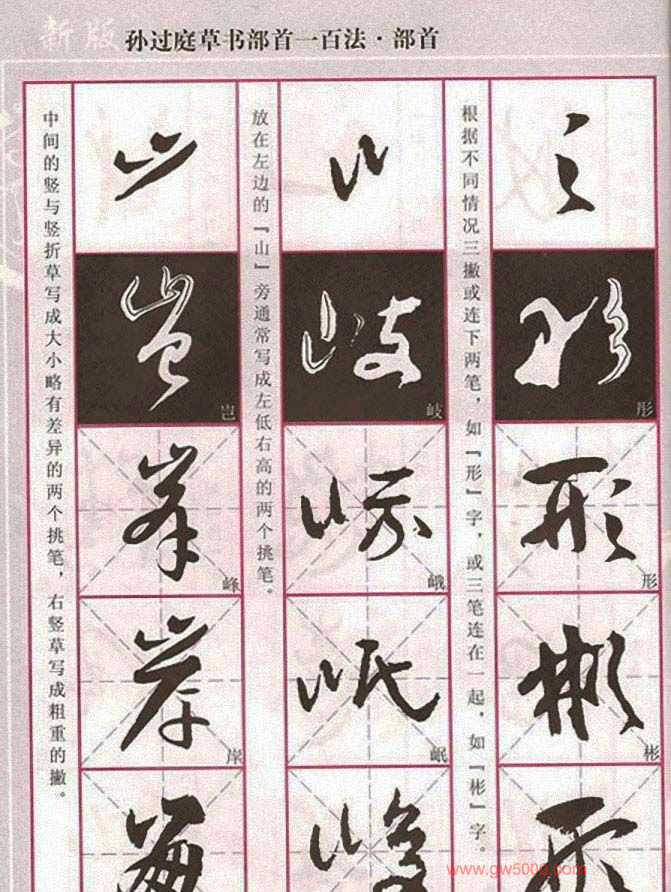 新版 孙过庭草书部首一百法·部首
彤
形
彬
根据不同情况三撇或连下两笔，如『形』字，或三笔连在一起，如『彬』字。
岐
峨
岷
放在左边的『山』旁通常写成左低右高的两个挑笔。
岂
峰
岸
中间的竖与竖折草写成大小略有差异的两个挑笔，右竖草写成粗重的撇。
www.gw5000.com